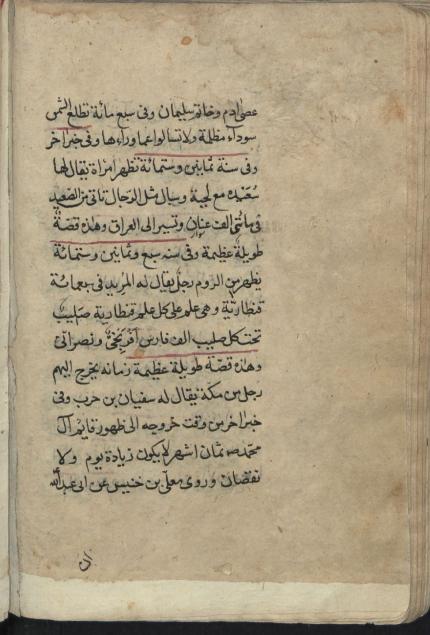 عصى ادم وخاتم سليمان وفى سبع مائة تطلع الشمس
سوداء مظلمة ولا تسالوا عما وراءها وفى خبر اخر
وفى سنة ثمانين وستمائة تظهر امراة يقال لها
مع لحية وسبال مثل الرجال تاتى من الصعيد
فى مائتى الف عنان وتسير الى العراق وهذه قصة
طويلة عظيمة وفى سنه سبع وثمانين وستمائة
يظهر من الروم رجل يقال له المزيد فى
قنطارية وهى علم على كل علم قنطارية صليب
تحت كل صليب الف فارس افرنجى ونصرانى
وهذه قصة طويلة عظيمة زمانه يخرج اليهم
رجل من مكة يقال له سفيان بن حرب وفى
خبر اخر من وقت خروجه الى ظهور قايم آل
محمد صه ثمان اشهر لا يكون زيادة يوم ولا
نقصان وروى معلى بن خنيس عن ابى عبد الله